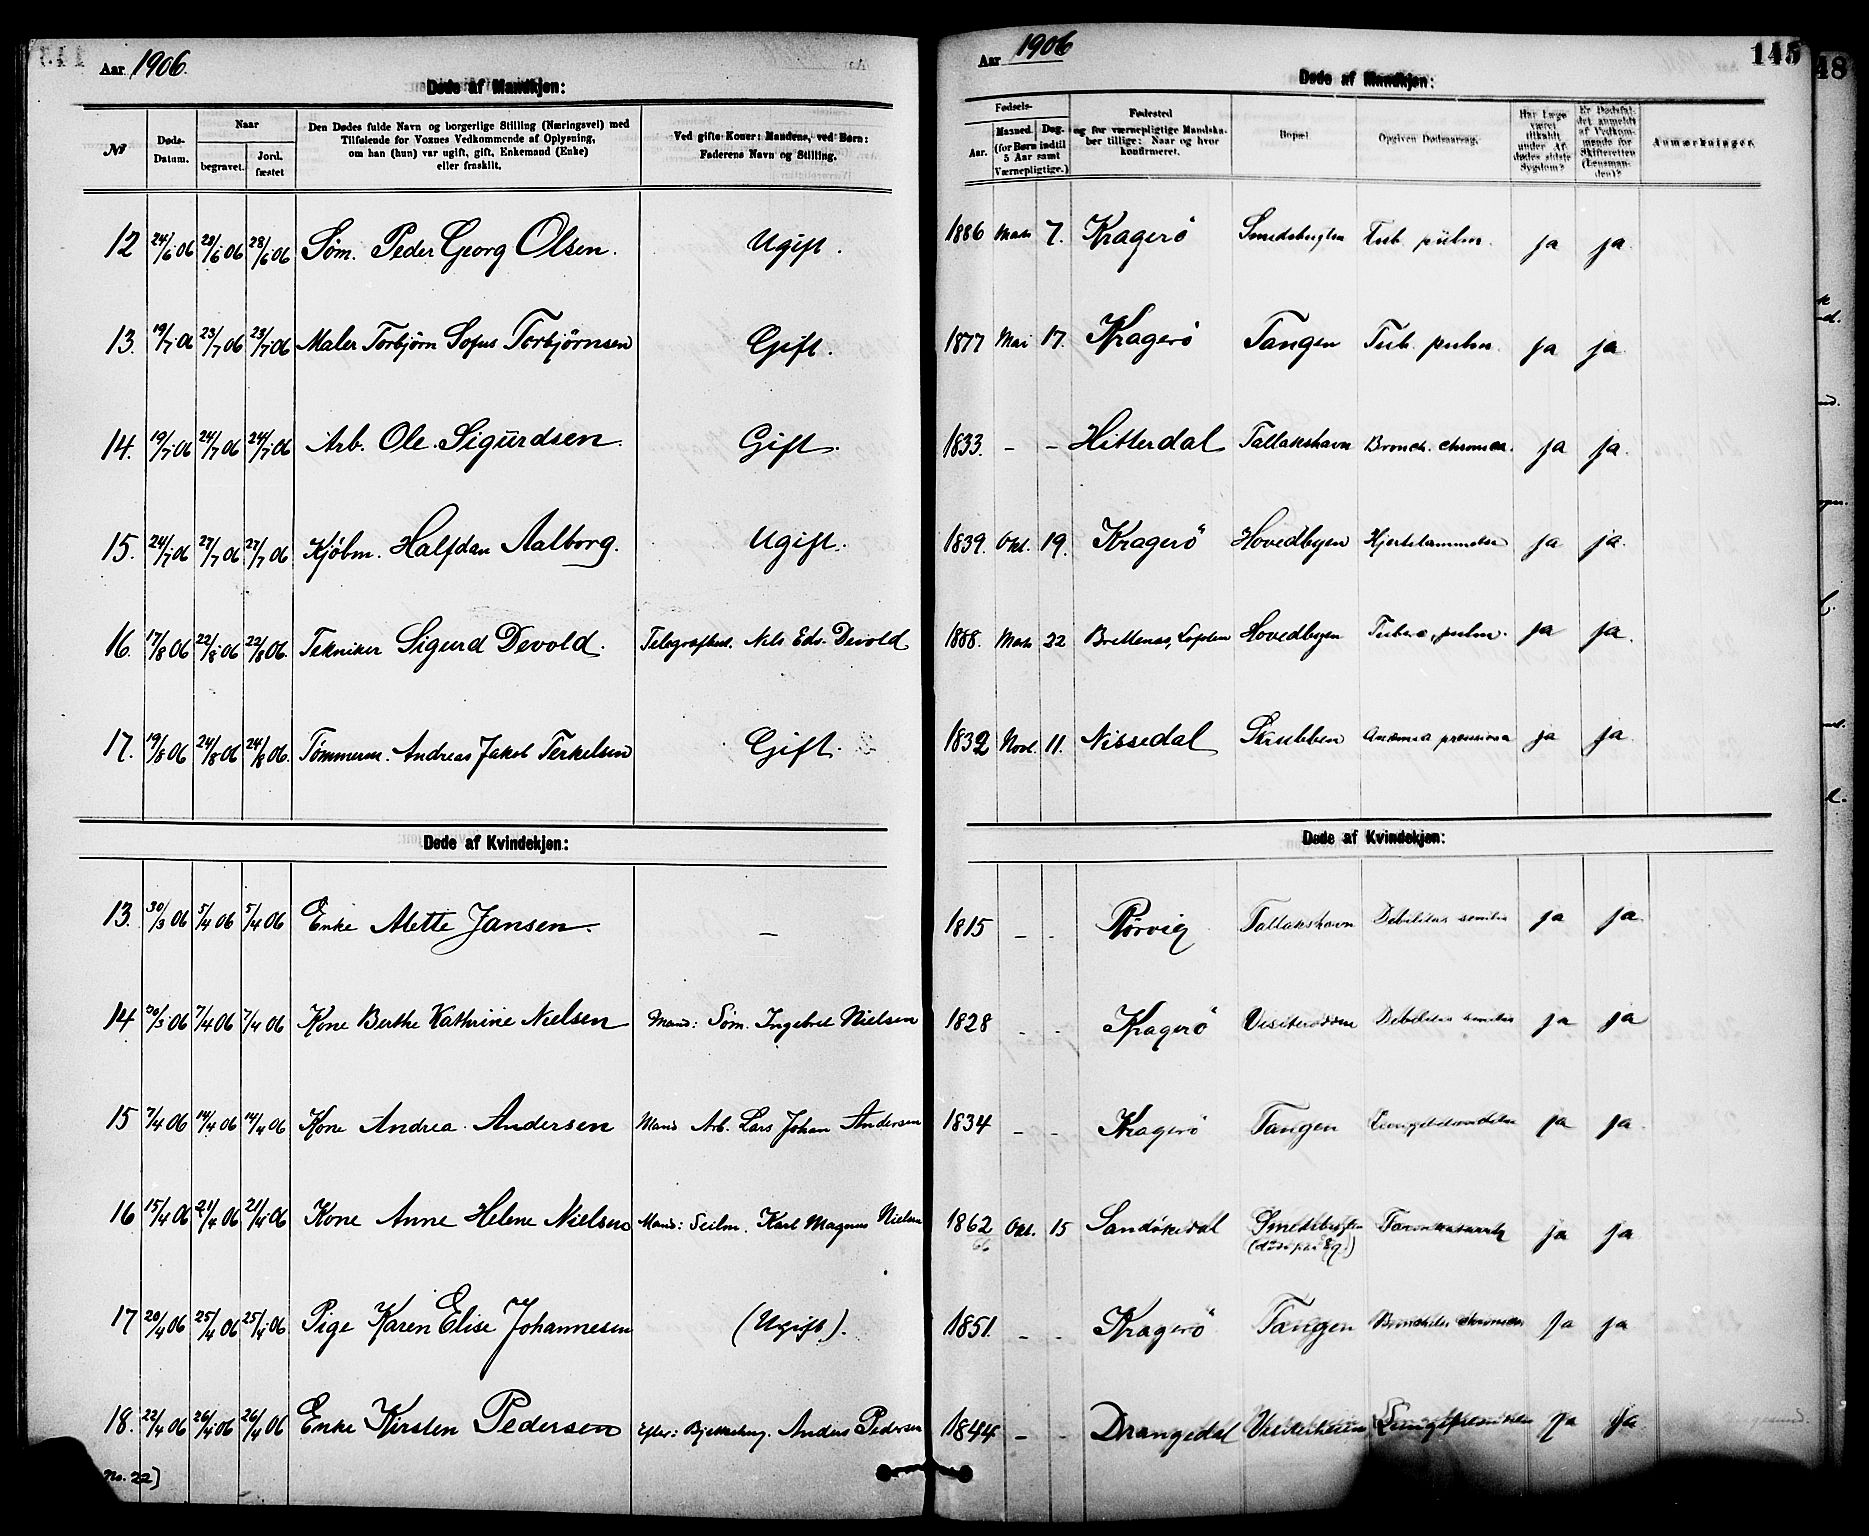 Aar 1906.
Døde af Mandkjøn:
№
Døds-Datum.
Naar
begravet.
Jord. fæstet
Den Dødes fulde Navn og borgerlige Stilling (Næringsvei) med
Tilføiende for Voxnes Vedkommende af Oplysning,
om han (hun) var ugift, gift, Enkemand (Enke)
eller fraskilt.
Ved gifte Koner: Mandens, ved Børn:
Faderens Navn og Stilling.
12 24/6 06 28/6 06 28/6 06 Søm. Peder Georg Olsen. Ugift.
13. 19/7 06 23/7 06 23/7 06 Maler Torbjørn Sofus Torbjørnsen Gift.
14. 19/7 06 24/7 06 24/7 06 Arb. Ole Sigurdsen. Gift.
15. 24/7 06 27/7 06 27/7 06 Kjøbm. Halfdan Aalborg. Ugift.
16. 17/8 06 22/8 06 22/8 06. Tekniker Sigurd Devold. Telegrafbest. Nels Edv. Devold
17. 19/8 06 24/8 06 24/8 06. Tømmerm. Andreas Jakob Terkelsen Gift.
Døde af Kvindekjøn:
13. 30/3 06 5/4 06 5/4 06 Enke Alette Jansen. —
14 30/3 06 7/4 06 7/4 06 Kone Berthe Kathrine Nielsen Mand: Søm. Ingebret Nielsen
15 7/4 06 14/4 06 14/4 06 Kone Andrea Andersen Mand Arb. Lars Johan Andersen
16 15/4 06 21/4 06 21/4 06 Kone Anne Helene Nielsen Mand: Seilm. Karl Magnus Nielsen
17 20/4 06 25/4 06 25/4 06 Pige Karen Elise Johannesen (Ugift).
18. 22/4 06 26/4 06 26/4 06 Enke Kirsten Pedersen Efter: Anders Pedersen
No. 22)
Aar 1906
145
48
Døde af Mandkjøn:
Fødsels-
Aar.
Maaned. Dag.
(for Børn indtil
5 Aar samt
Værnepligtige.)
Fødested
og for værnepligtige Mandska-
ber tillige: Naar og hvor
konfirmeret.
Bopæl
Opgiven Dødsaarsag.
Har Læge
været
tilkaldt
under Af-
dødes sidste
Sygdom?
Er Dødsfal-
det anmeldt
af Vedkom-
mende for
Skifteretten
(Lensman-
den)?
Anmærkninger.
1886 Mars 7. Kragerö Smedsbugten Tub. pulm. ja ja.
1877 Mai 17. Kragerö Tangen Tub. pulm. ja ja.
1833. – – Hitterdal Tallakshavn Bronch. chronica. ja ja.
1839. Okt. 19. Kragerö Hovedbyen Hjertelammelse ja ja.
1888. Mars 22 Brettenæs, Lofoten Hovedbyen Tuberc. pulm. ja ja.
1832 Novb. 11. Nissedal Skrubben Anæmia perniciosa ja ja.
Døde af Kvindekjøn:
1815 – – Rörvig Tallakshavn Debilitas senilis ja ja.
1828 – – Kragerö Visiterodden Debilitas senilis ja ja
1834 – – Kragerö Tangen Lungebetændelse ja ja.
1862 Okt. 15 Sandökedal Smedsbugten ja ja
66
(död paa Sgh.)
1851. – – Kragerö Tangen Bronchitis chronica ja ja
1844 – – Drangedal ja ja